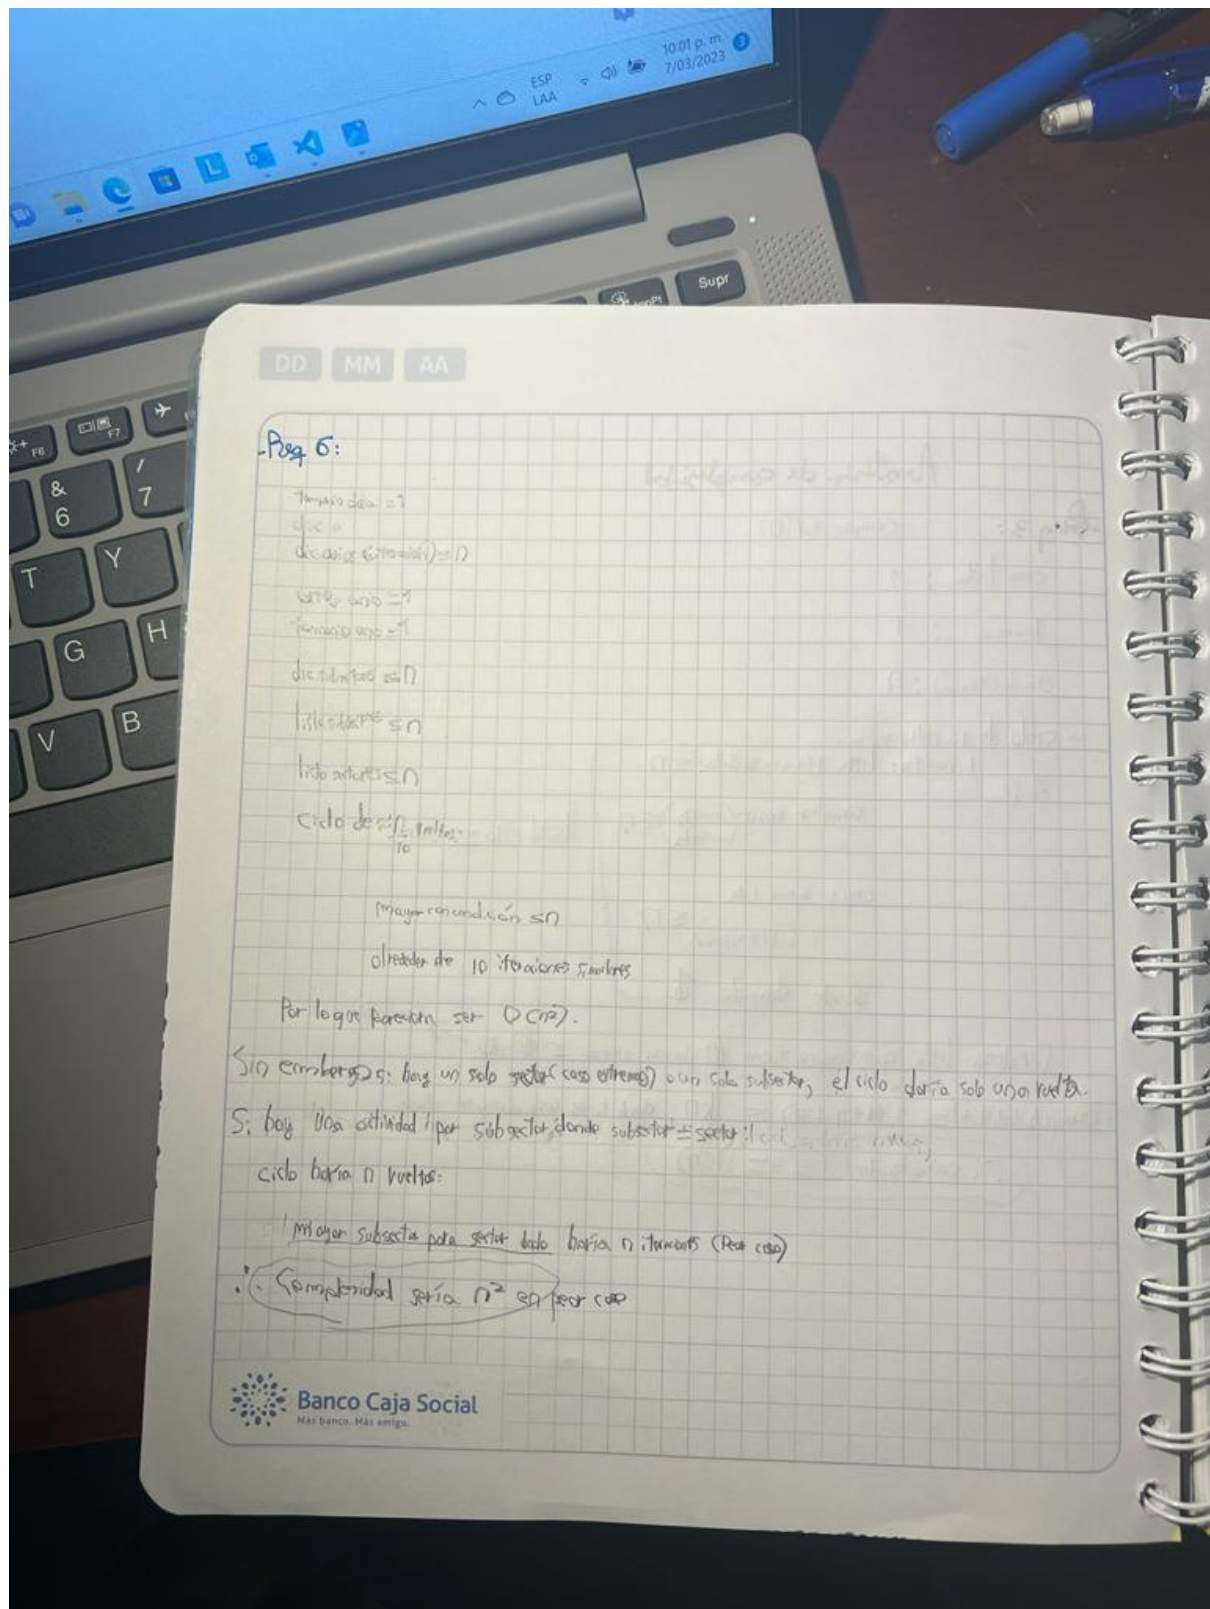 10:01 p. m.
7/03/2023
3
ESP
LAA
L
Supr
ImpPt
F6
F7
&
6
/
7
T
Y
G
H
V
B
DD MM AA
-Req 6:
tamaño data = 1
=n
año = 1
tamaño año = 1
≤n
lista ≤n
lista ≤n
ciclo de ≈ n/10 vueltas:
mayor con condición ≤n
alrededor de 10 iteraciones similares
Por lo que parecería ser O(n²).
Sin embargo si hay un solo sector (caso extremo) o un solo subsector, el ciclo daría solo una vuelta.
Si hay una actividad por subsector, donde subsector = sector
ciclo haría n vueltas:
mayor subsector para sector dado haría n iteraciones (Peor caso)
∴ Complejidad sería n² en peor caso
Banco Caja Social
Más banco. Más amigo.